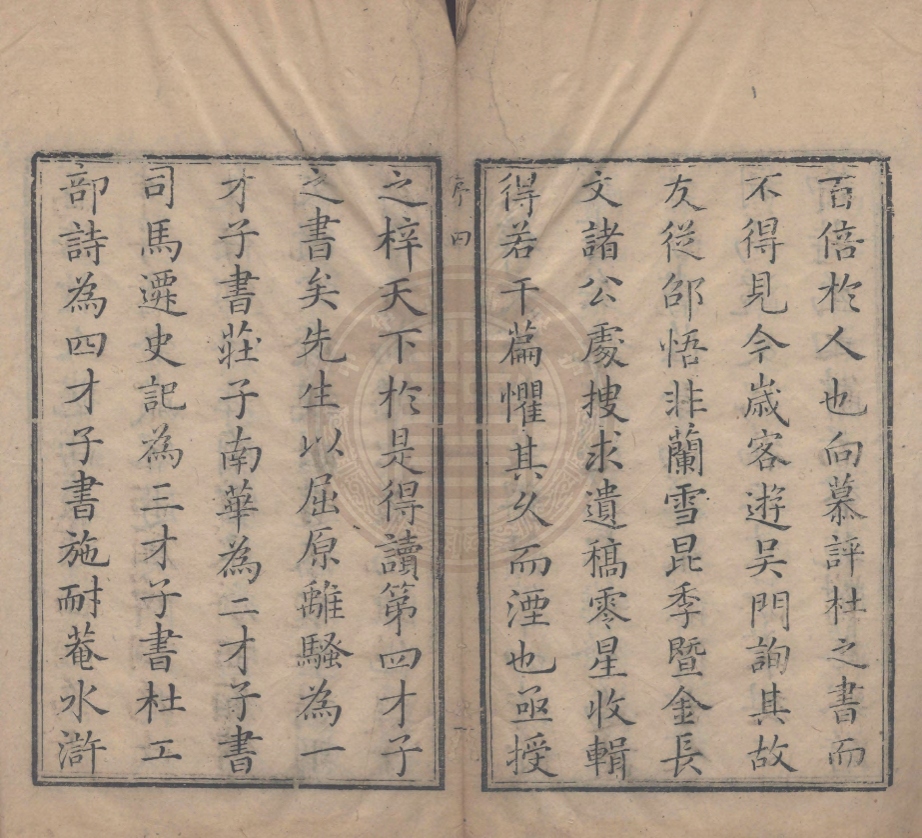 百倍於人也向慕評杜之書而
不得見今歲客遊吳門詢其故
友從邵悟非蘭雪昆季暨金長
文諸公處搜求遺稿零星收輯
得若干篇懼其久而湮也亟授
序 四
之梓天下於是得讀第四才子
之書矣先生以屈原離騷為一
才子書莊子南華為二才子書
司馬遷史記為三才子書杜工
部詩為四才子書施耐菴水滸